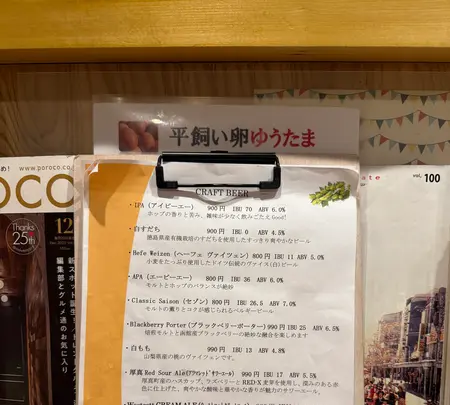 平飼い卵ゆうたま
CRAFT BEER
・IPA (アイピーエー) 900円 IBU 70 ABV 6.0%
ホップの香りと苦み、雑味が少なく飲みごたえGood!
・白すだち 900円 IBU 0 ABV 4.5%
徳島県産有機栽培のすだちを使用したすっきり爽やかなビール
・Hefe Weizen (ヘーフェ ヴァイツェン) 800円 IBU 11 ABV 5.0%
小麦をたっぷり使用したドイツ伝統のヴァイス(白)ビール
・APA (エーピーエー) 800円 IBU 36 ABV 6.0%
モルトとホップのバランスが絶妙
・Classic Saison (セゾン) 800円 IBU 26.5 ABV 7.0%
モルトの重厚感とコクが感じられるベルギービール
・Blackberry Porter (ブラックベリーポーター) 990円 IBU 25 ABV 6.5%
焙煎モルトと函館産ブラックベリーの絶妙な融合を楽しめます
・白もも 990円 IBU 13 ABV 4.8%
山梨県産の桃のヴァイツェンです。
・厚真 Red Sour Ale 990円 IBU 17 ABV 5.5%
厚真町産のハスカップ、ラズベリーとRED-X麦芽を使用し、深みのある赤
色に仕上げた、爽やかな酸味と華やかな香りが魅力のサワーエール。
め! www.poroco.co
OCO
Thanks
25th
12
編集部とグルメ通のお気に入り
vol. 100